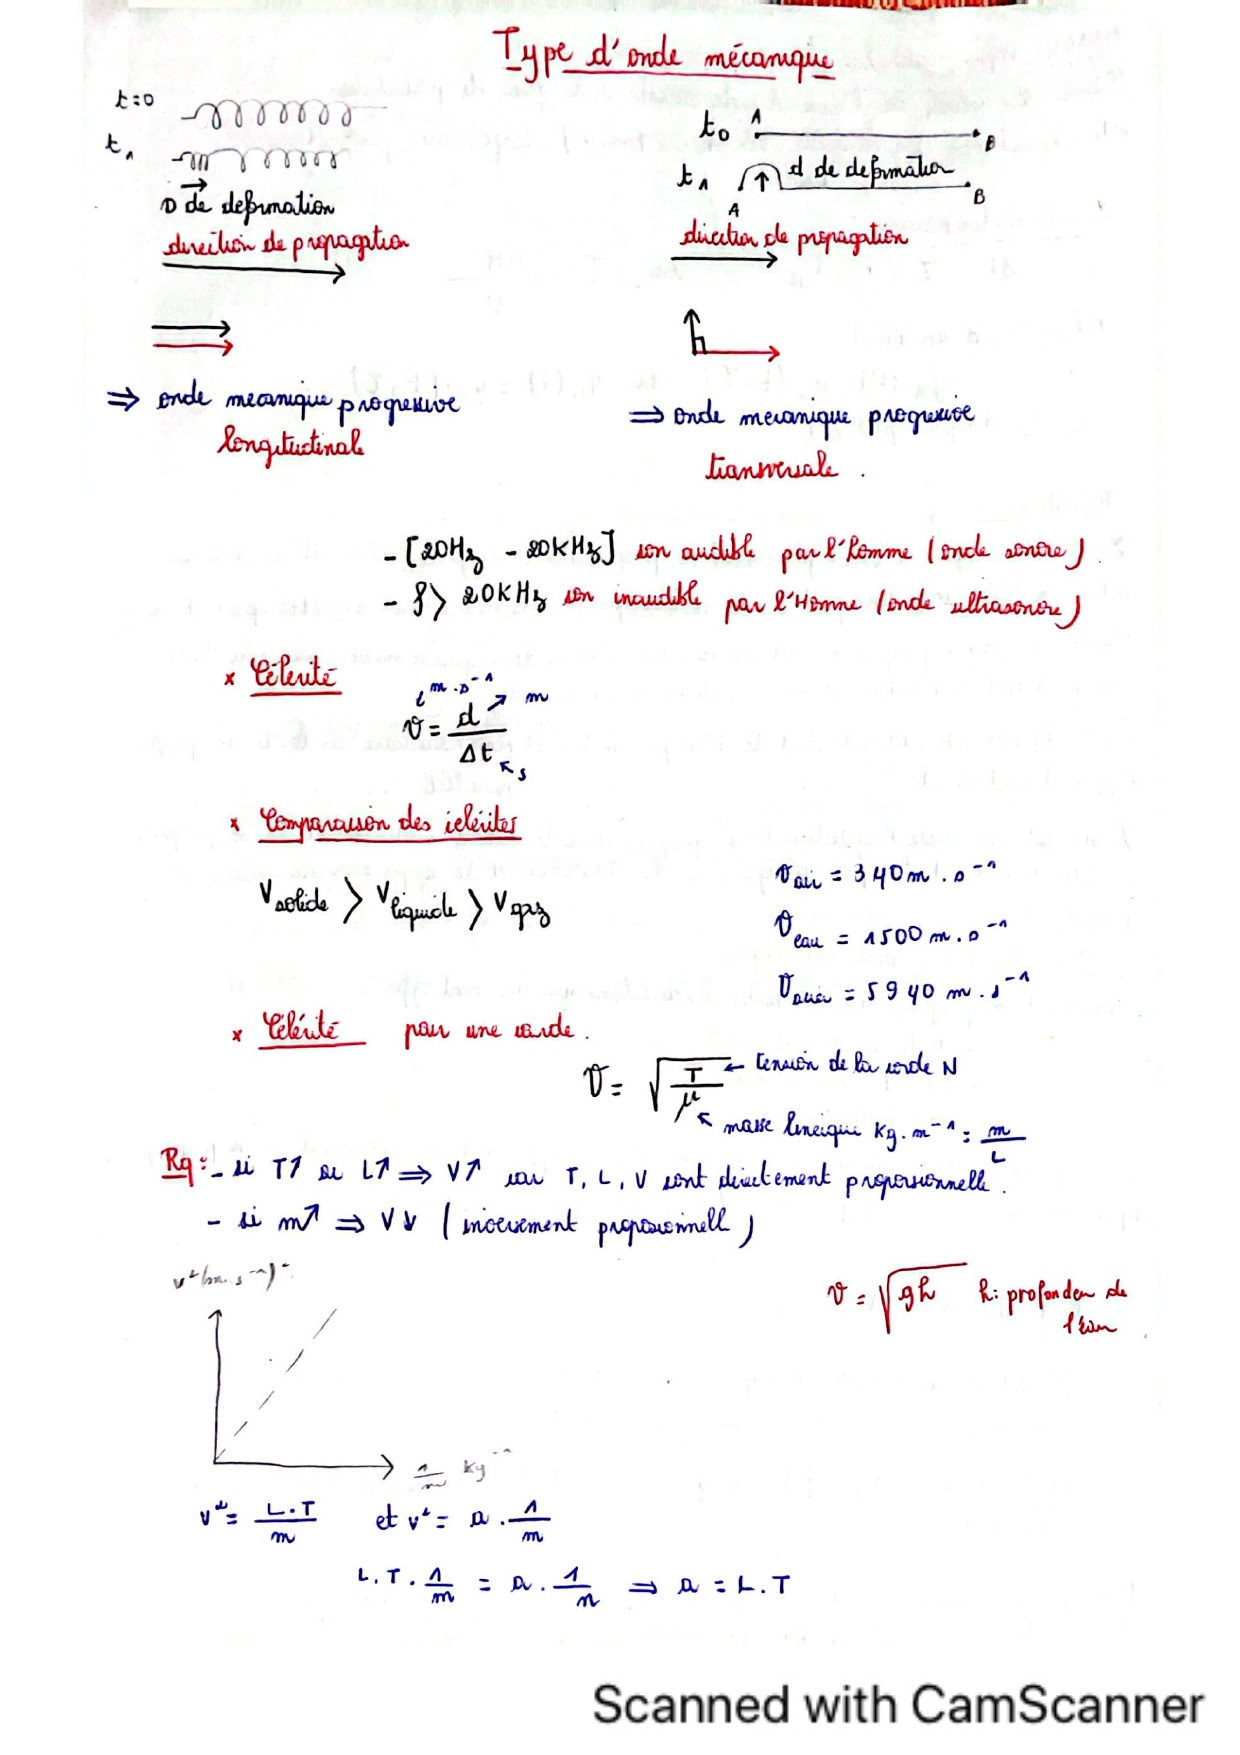 Type d'onde mécanique
t=0
t1
D de deformation
direction de propagation
t0 A B
t1 d de deformation
A B
direction de propagation
⇒ onde mecanique progressive
longitudinale
⇒ onde mecanique progressive
transversale .
- [20Hz - 20KHz] son audible par l'homme (onde sonore)
- f> 20KHz son inaudible par l'Homme (onde ultrasonore)
x Célérité
m.s⁻¹ m
v = d / Δt
s
x Comparaison des célérités
Vsolide > Vliquide > Vgaz
vair = 340m.s⁻¹
veau = 1500 m.s⁻¹
vacier = 5940 m.s⁻¹
x Célérité pour une corde .
v = √(T/μ) ← tension de la corde N
masse lineique Kg.m⁻¹ = m/L
Rq:- si T↗ ou L↗ ⇒ V↗ car T, L, V sont directement proporsionnelle .
- si m↗ ⇒ V↘ (inversement proporsionnell)
v²(m.s⁻¹)²
v = √gh h: profondeu de
l'eau
1/m Kg⁻¹
v² = L.T/m et v² = a . 1/m
L.T. 1/m = a . 1/m ⇒ a = L.T
Scanned with CamScanner